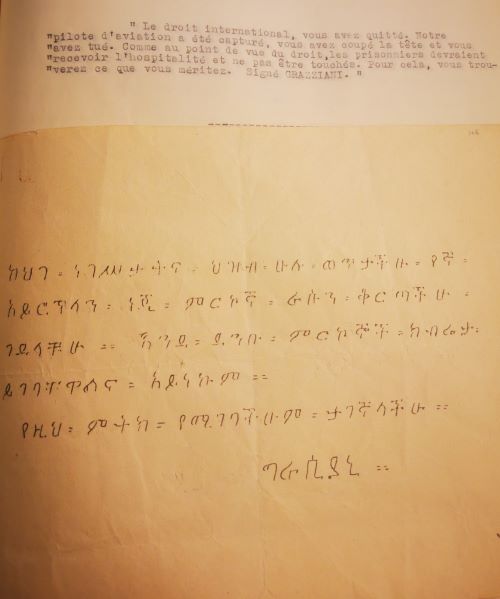 " Le droit international, vous avez quitté. Notre
"pilote d'aviation a été capturé, vous avez coupé la tête et vous
"avez tué. Comme au point de vue du droit,les prisonniers devraient
"recevoir l'hospitalité et ne pas être touchés. Pour cela, vous trou-
"verez ce que vous méritez. Signé GRAZZIANI. "
ከህገ ፡ ነገሥታትና ፡ ህዝብ ፡ ሁሉ ፡ ወጥታችሁ ፡ የኛ ፡
አይሮፕላን ፡ ነጂ ፡ ምርኮኛ ፡ ራሱን ፡ ቆርጣችሁ ፡
ገደላችሁ ። እንደ ፡ ደንቡ ፡ ምርኮኞች ፡ ክብሬታ
ይገባቸዋልና ፡ አይነኩም ።
የዚህ ፡ ምትክ ፡ የሚገባችሁም ፡ ታገኛላችሁ ።
ግራሲያኒ ።